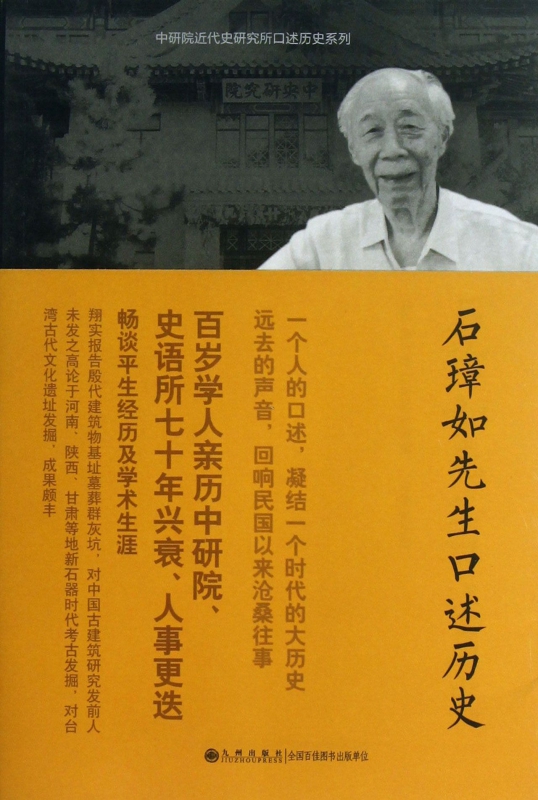 中研院近代史研究所口述历史系列
中央研究院
石璋如先生口述历史
一个人的口述，凝结一个时代的大历史
远去的声音，回响民国以来沧桑往事
百岁学人亲历中研院、
史语所七十年兴衰、人事更迭
畅谈平生经历及学术生涯
翔实报告殷代建筑物基址墓葬群灰坑，对中国古建筑研究发前人
未发之高论于河南、陕西、甘肃等地新石器时代考古发掘，对台
湾古代文化遗址发掘，成果颇丰
九州出版社
JIUZHOUPRESS
全国百佳图书出版单位